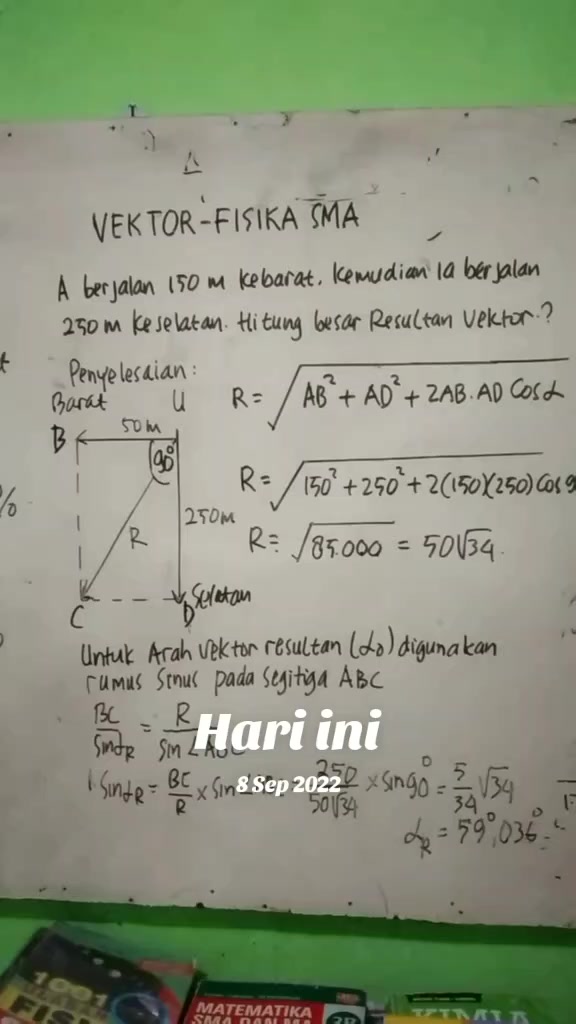 VEKTOR-FISIKA SMA
A berjalan 150 m kebarat. Kemudian ia berjalan
250 m keselatan. Hitung besar Resultan Vektor.?
Penyelesaian:
Barat U
B 50 m
90°
R
250 m
C D Selatan
R = √AB² + AD² + 2AB.AD Cos α
R = √150² + 250² + 2(150)(250) Cos 9
R = √85.000 = 50√34.
Untuk Arah Vektor resultan (αD) digunakan
rumus Sinus pada Segitiga ABC
BC/Sin αR = R/Sin ∠ABC
Sin αR = BC/R × Sin 250/50√34 × Sin 90° = 5/34 √34
αR = 59°,036°
Hari ini
8 Sep 2022
1001
FISI
MATEMATIKA
SMA DAN MA
KIMIA